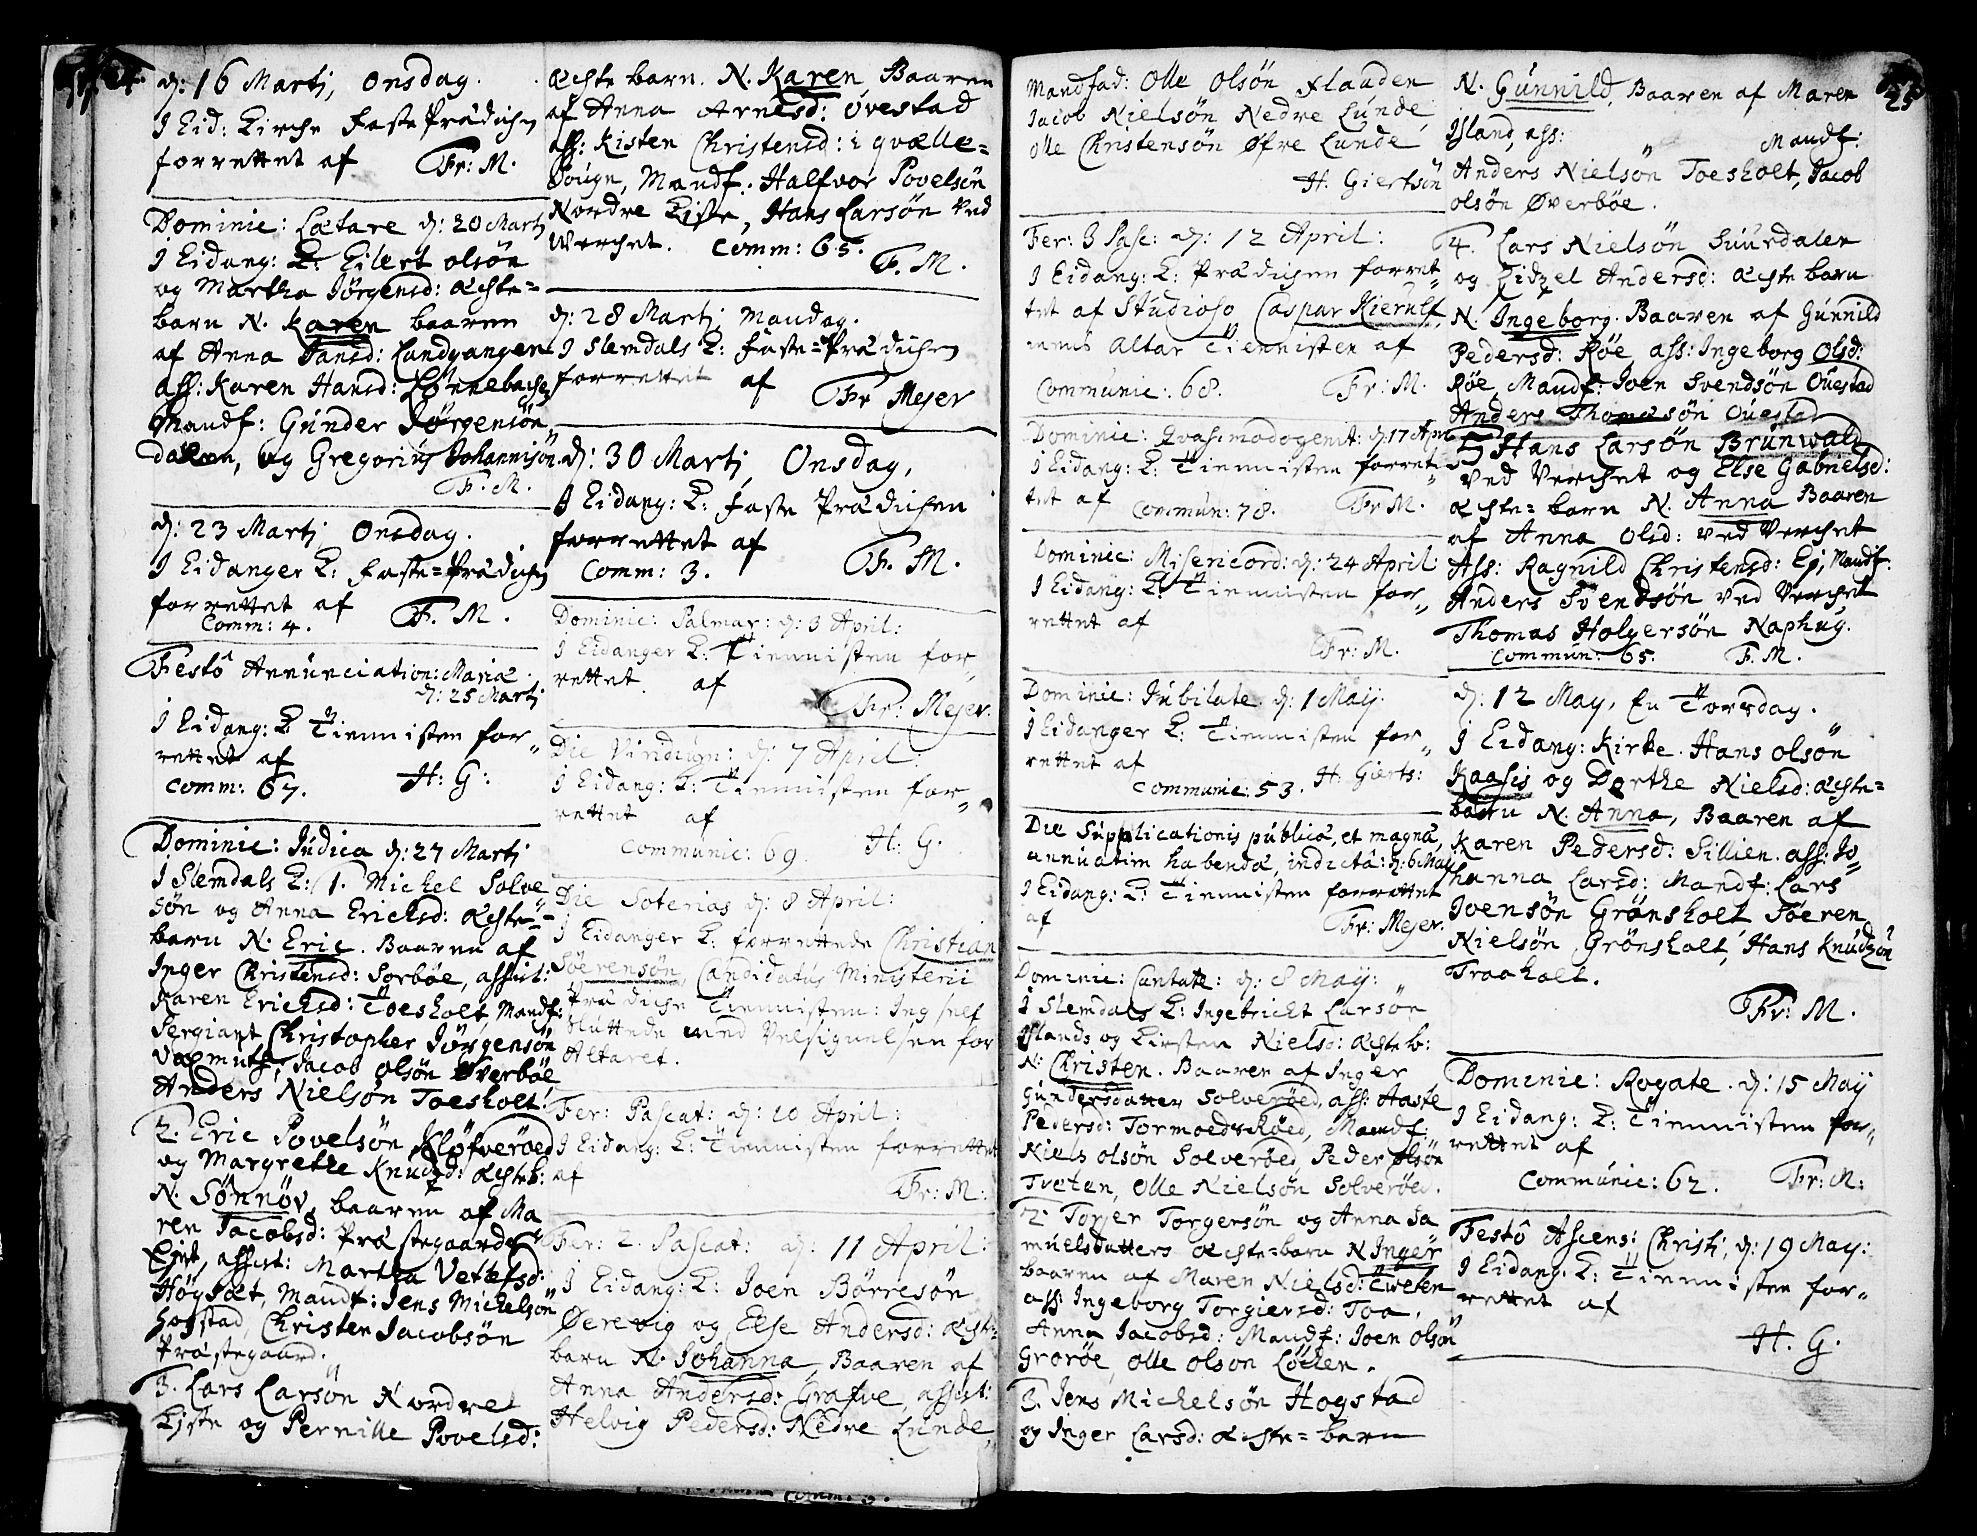 24.
d: 16 Martj, Onsdag.
J Eid: Kirche Faste Prædichen
forrettet af Fr: M.
Dominic: Lætare d: 20 Martj
J Eidang: K: Eilert olsön
og Martha Jörgensd: Ægte=
barn N. Karen baaren
af Anna Hansd: Landgangen
ass: Karen Hansd: Lönnebache
Mandf: Gunder Jörgensön
dalen, og Gregorius Johannisön
F. M.
d: 23 Martj Onsdag.
J Eidanger K: Faste=Prædichen
forrettet af
Comm: 4. F. M.
Festô Annunciation: Mariæ
d: 25 Martj
J Eidang: K Tiennisten for=
rettet af
Comm: 67. H: G:
Dominic: Judica d: 27 Martj
J Slemdals K: 1. Michel Solve
sön og Anna Erichsd: Ægte=
barn N. Eric. Baaren af
Inger Christensd: Sorböe, assist:
Karen Erichsd: Toesholt, Mandf:
Sergiant Christopher Jörgensön
Jacob olsön Øverböe
Anders Nielsön Toesholt.
2. Eric Povelsön Klöfveröed
og Margrethe Knudsd: Ægteb:
N. Sönnöv, baaren af Ma
ren Jacobsd: Præstegaards
Eiet, assist: Martha Vetlesd:
Högset, Mandf: Jens Michelsön
Hogstad, Christen Jacobsön
Præstegaard.
3. Lars Larsön Nordre
Liste og Pernille Povelsd:
Ægte barn. N. Karen Baaren
af Anna Arnesd: Øvestad
ass: Kisten Christensd: i qvælle=
Sougn, Mandf: Halfvor Povelsön
Nordre Liste, Hans Larsön Ved
Verchet. Comm: 65.
F. M.
d: 28 Martj Mandag.
J Slemdals K: Faste=Prædichen
forrettet af
Fr Mejer
d: 30 Martj Onsdag,
J Eidang: K: Faste Prædichen
forrettet af
Comm: 3. F. M.
Dominic: Palmar: d: 3 April:
J Eidanger K: Tiennisten for=
rettet af
Fr: Mejer.
Die Viridium: d: 7 April:
J Eidang: K: Tiennisten for=
rettet af
Communic: 69. H: G.
Die Soterias d: 8 April:
J Eidanger K: forrettede Christian
Söerensön Candidatus Ministerii
Prædiche Tiennisten: Jeg self
sluttede med Velsignelsen for
Alteret.
Fer: Pascat: d: 10 April:
J Eidang: K: Tiennisten forrettet
af
Fr: M:
Fer: 2. Pascat: d: 11 April:
J Eidang: K: Joen Börresön
Øerevig og Else Andersd: Ægte
barn N. Johanna, Baaren af
Anna Andersd: Grafve, assist:
Helvig Pedersd: Nedre Lunde,
Mandfad: Olle Olsön Flauden
Jacob Nielsön Nedre Lunde,
Olle Christensön Øfre Lunde
H. Giertsön
Fer: 3 Pasc: d: 12 April:
J Eidang: K: Prædichen forret=
tet af Studioso Caspar Kierulf,
mens Altar Tiennisten af
Communic: 68. Fr: M.
Dominic: Qvasimodogenit: d: 17 Apr:
J Eidang: K: Tiennisten forret=
tet af Commun: 78. Fr M.
Dominic: Misericord: d: 24 April:
J Eidang: K: Tiennisten for=
rettet af
Fr: M.
Dominic: Jubilate. d: 1 Maij:
J Eidanger K: Tiennisten for=
rettet af
Communic: 53. H: Gierts:
Die Supplicationis publicæ, et magnæ,
annuatim habendæ, indicta: d: 6 Maij
J Eidang: K: Tiennisten forrettet
af Fr: Mejer.
Dominic: Cantate: d: 8 Maij:
J Slemdals K: Ingebricht Larsön
Jsland og Kirsten Nielsd: Ægte b:
N: Christen. Baaren af Inger
Gundersdatter Solveröed, ass: Aaste
Pedersd: Tormoedsröed, Mandf:
Niels olsön Solveröed, Peder olsön
Tveten, Olle Nielsön Solveröed.
2. Torjer Torgersön og Anna Sa
muelsdatters Ægte=barn N Inger
baaren af Maren Nielsd: Tweten
ass: Ingeborg Torgiersd: Toa,
Anna Jacobsd: Mandf: Joen olsön
Groröe, Olle olson Löcken.
3. Jens Michelsön Hogstad
og Inger Larsd: Ægte=barn
25
N. Gunnild, Baaren af Maren
Jsland, ass: Mandf:
Anders Nielsön Toesholt, Jacob
olsön Øverböe.
4. Lars Nielsön Suurdalen
og Kidzel Andersd: Ægte barn
N. Ingeborg. Baaren af Gunnild
Pedersd: Röe, ass: Ingeborg Olsd:
Röe, Mandf: Joen Svendsön Ouestad
Anders Thomæsön Ouestad
5 Hans Larsön Brunwald
ved Verchet og Else Gabrielsd:
Ægte=barn N. Anna Baaren
af Anna Olsd: ved Verchet
Ass: Ragnild Christensd: Ej, Mandf:
Anders Svendsön ved Verchet
Thomas Holgersön Naphug.
Commun: 65. F. M.
d: 12 May, En Torsdag.
J Eidang: Kirke. Hans olsön
Kaasis og Dorthe Nielsd: Ægte=
barn N. Anna, Baaren af
Karen Pedersd: Sillien. ass: Jo=
hanna Larsd: Mandf: Lars
Joensön Grönsholt Söeren
Nielsön Grönsholt, Hans Knudzön
Traaholt.
Fr: M.
Dominic: Rogate. d: 15 Maij
J Eidang: K: Tiennisten for=
rettet af
Communic: 62. Fr: M:
Festô Ascens: Christi, d: 19 May:
J Eidang: K: Tiennisten for=
rettet af
H. G.